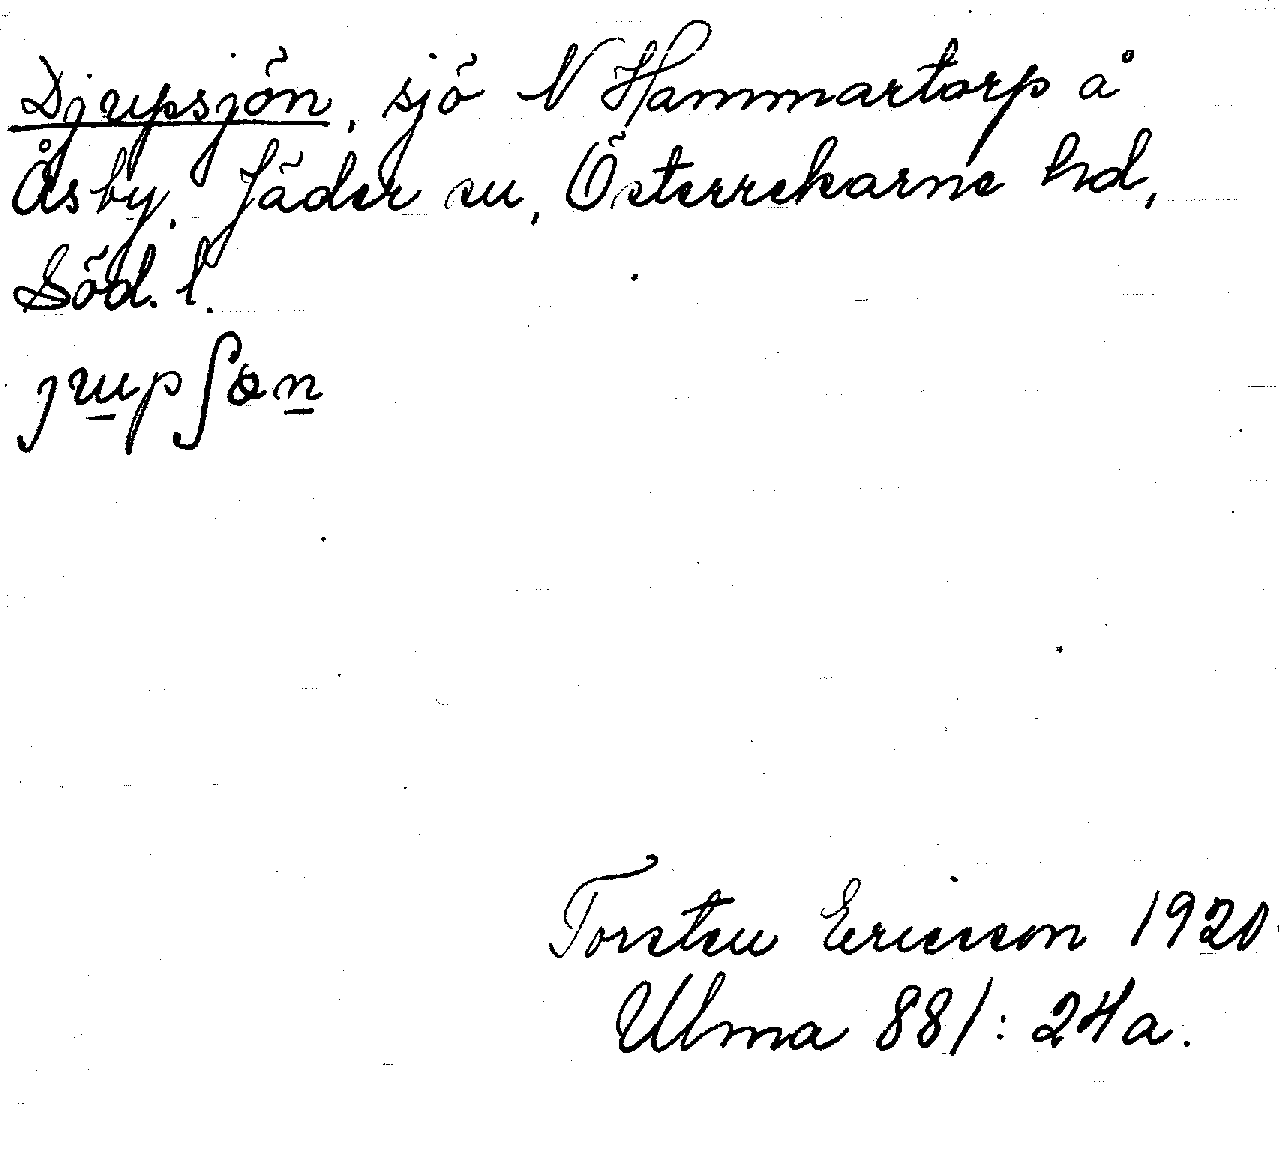 Djupsjön, sjö N Hammartorp å
Åsby. Jäder sn, Österrekarne hd,
Söd. l.
Torsten Ericsson 1920
Ulma 881: 24a.